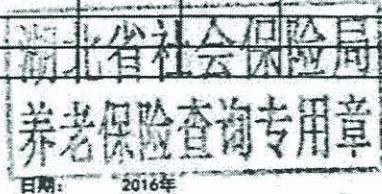 湖北省社会保险局
养老保险查询专用章
日期： 2016年